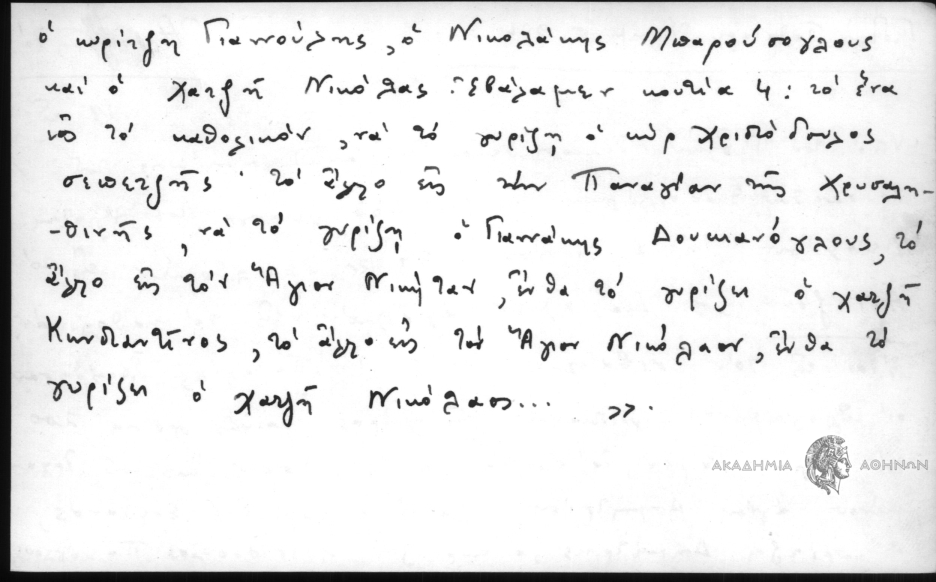 ὁ κυρίτζη Γιαννούλης, ὁ Νικολάκης Μπαρούσογλους
καί ὁ χατζῆ Νικόλας. Ἐβάλαμεν κουτία 4: τό ἕνα
εἰς τό καθολικόν, νά τό γυρίζῃ ὁ κύρ Χριστόδουλος
σεπετζῆς· τό ἄλλο εἰς τήν Παναγίαν τῆς Χρυσαλη-
-θινῆς, νά τό γυρίζῃ ὁ Γιαννάκης Δουκανόγλους, τό
ἄλλο εἰς τόν Ἅγιον Νικήταν, ἔνθα τό γυρίζει ὁ χατζῆ
Κωνσταντῖνος, τό ἄλλο εἰς τόν Ἅγιον Νικόλαον, ἔνθα τό
γυρίζει ὁ χατζῆ Νικόλαος... ».
ΑΚΑΔΗΜΙΑ ΑΘΗΝΩΝ